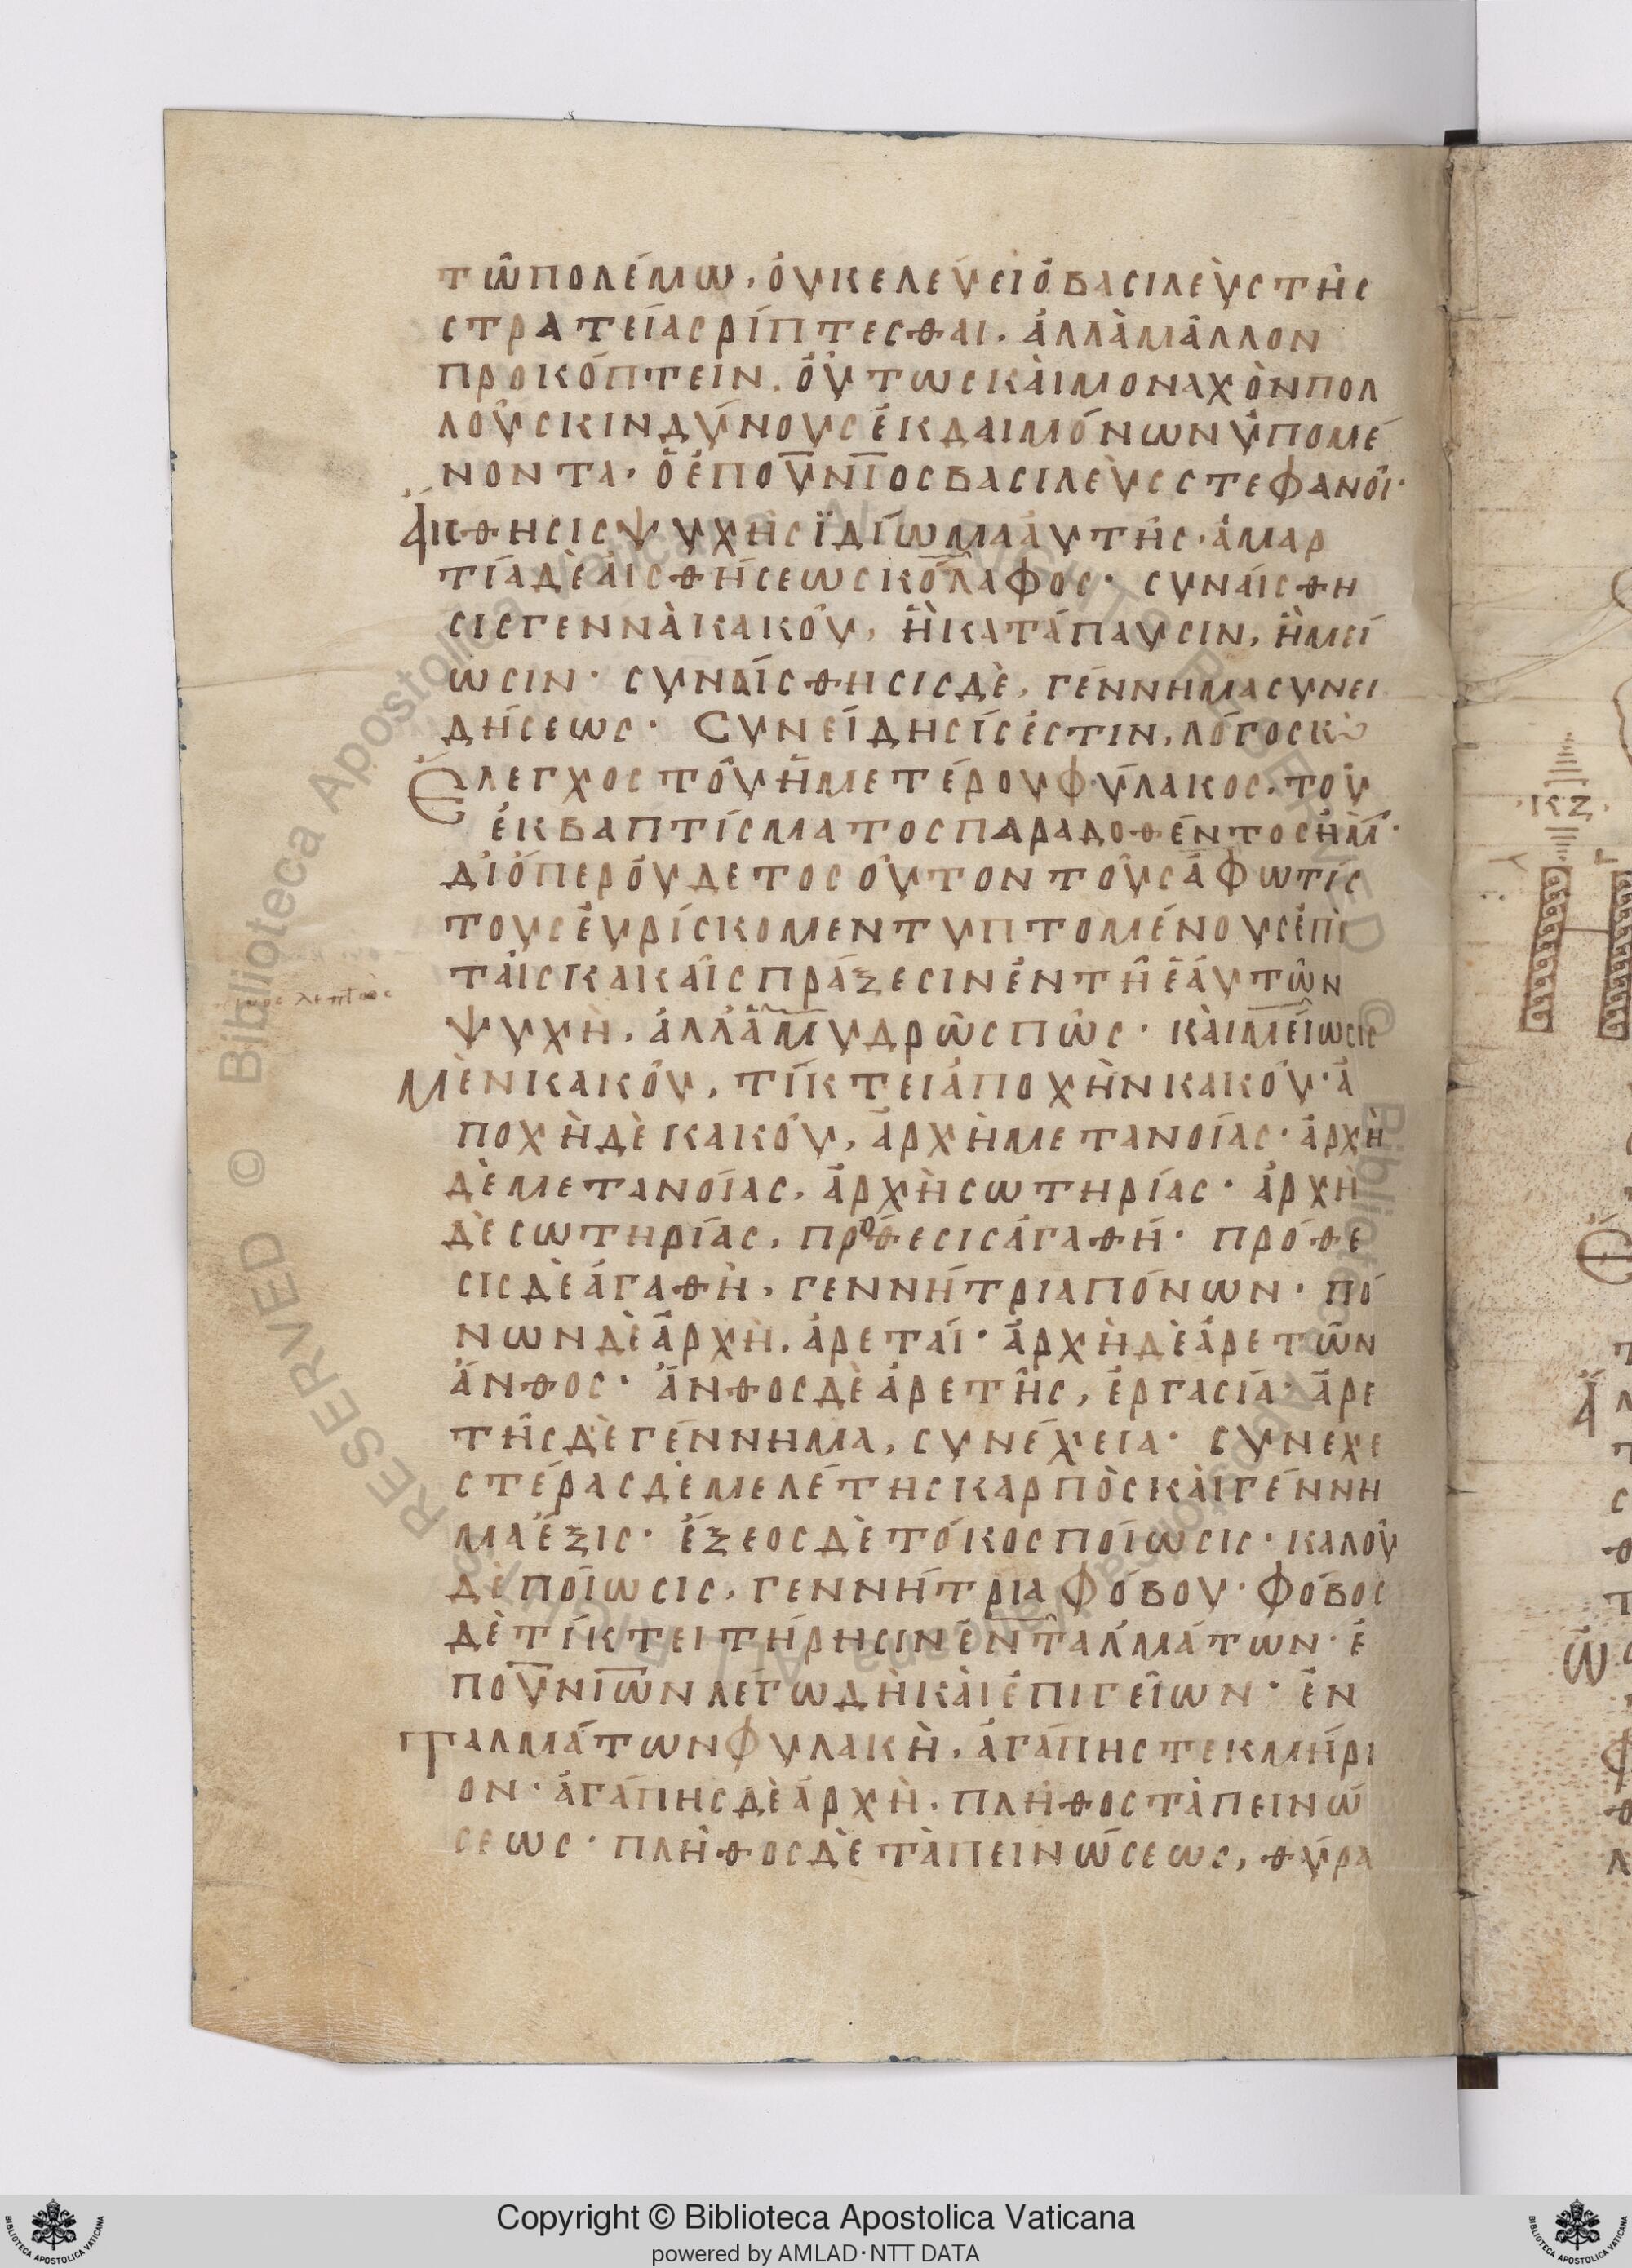 τῶ πολέμω, οὐ κελεύει ὁ βασιλεὺς τῆς
στρατείας ρίπτεσθαι. ἀλλὰ μᾶλλον
προκόπτειν. οὕτως καὶ μοναχὸν πολ
λοὺς κινδύνους ἐκ δαιμόνων ὑπομέ
νοντα· ὁ ἐπουνιος βασιλεὺς στεφανοῖ·
Αἴσθησις ψυχῆς ϊδίωμα αὐτῆς· ἁμαρ
τία δὲ αἰσθήσεως κόλαφος· συναίσθη
σις γεννᾶ κακοῦ, ἢ κατάπαυσιν, ἢ μεί
ωσιν· συναίσθησις δὲ, γέννημα συνει
δήσεως· Συνείδησίς ἐστιν, λόγος κὺ
Ἔλεγχος τοῦ ἡμετέρου φύλακος. τοῦ
ἐκ βαπτίσματος παραδοθέντος ἡμῖ·
διόπερ οὐδετοσοῦτον τοὺς ἀφωτίσ
τους εὑρίσκομεν τυπτομένους ἐπὶ
ταῖς κακαῖς πράξεσιν ἐν τῆ ἑαυτῶν
ψυχῆ. ἀλλ' ἀμυδρῶς πῶς· καὶ μείωσις
μὲν κακοῦ, τίκτει ἀποχὴν κακοῦ· ἀ
ποχὴ δὲ κακοῦ, ἀρχὴ μετανοίας· ἀρχὴ
δὲ μετανοίας, ἀρχὴ σωτηρίας· ἀρχὴ
δὲ σωτηρίας, πρόθεσις ἀγαθή· πρόθε
σις δὲ ἀγαθὴ, γεννήτρια πόνων· πό
νων δὲ ἀρχὴ, ἀρεταί· ἀρχὴ δὲ ἀρετῶν
ἄνθος· ἄνθος δὲ ἀρετῆς, ἐργασία· ἀρε
τῆς δὲ γέννημα, συνέχεια· συνεχε
στέρας δὲ μελέτης καρπὸς καὶ γέννη
μα ἕξις· ἕξεος δὲ τόκος ποίωσις· καλοῦ
δὲ ποίωσις, γεννήτρια φόβου· φόβος
δὲ τίκτει τήρησιν ἐνταλμάτων· ἐ
πουνιων λέγω δὴ καὶ ἐπιγείων· ἐν
ταλμάτων φυλακὴ, ἀγάπης τεκμήρι
ον· ἀγάπης δὲ ἀρχὴ, πλῆθος ταπεινώ
σεως· πλῆθος δὲ ταπεινώσεως, θύρα
κζ
Copyright © Biblioteca Apostolica Vaticana
powered by AMLAD·NTT DATA